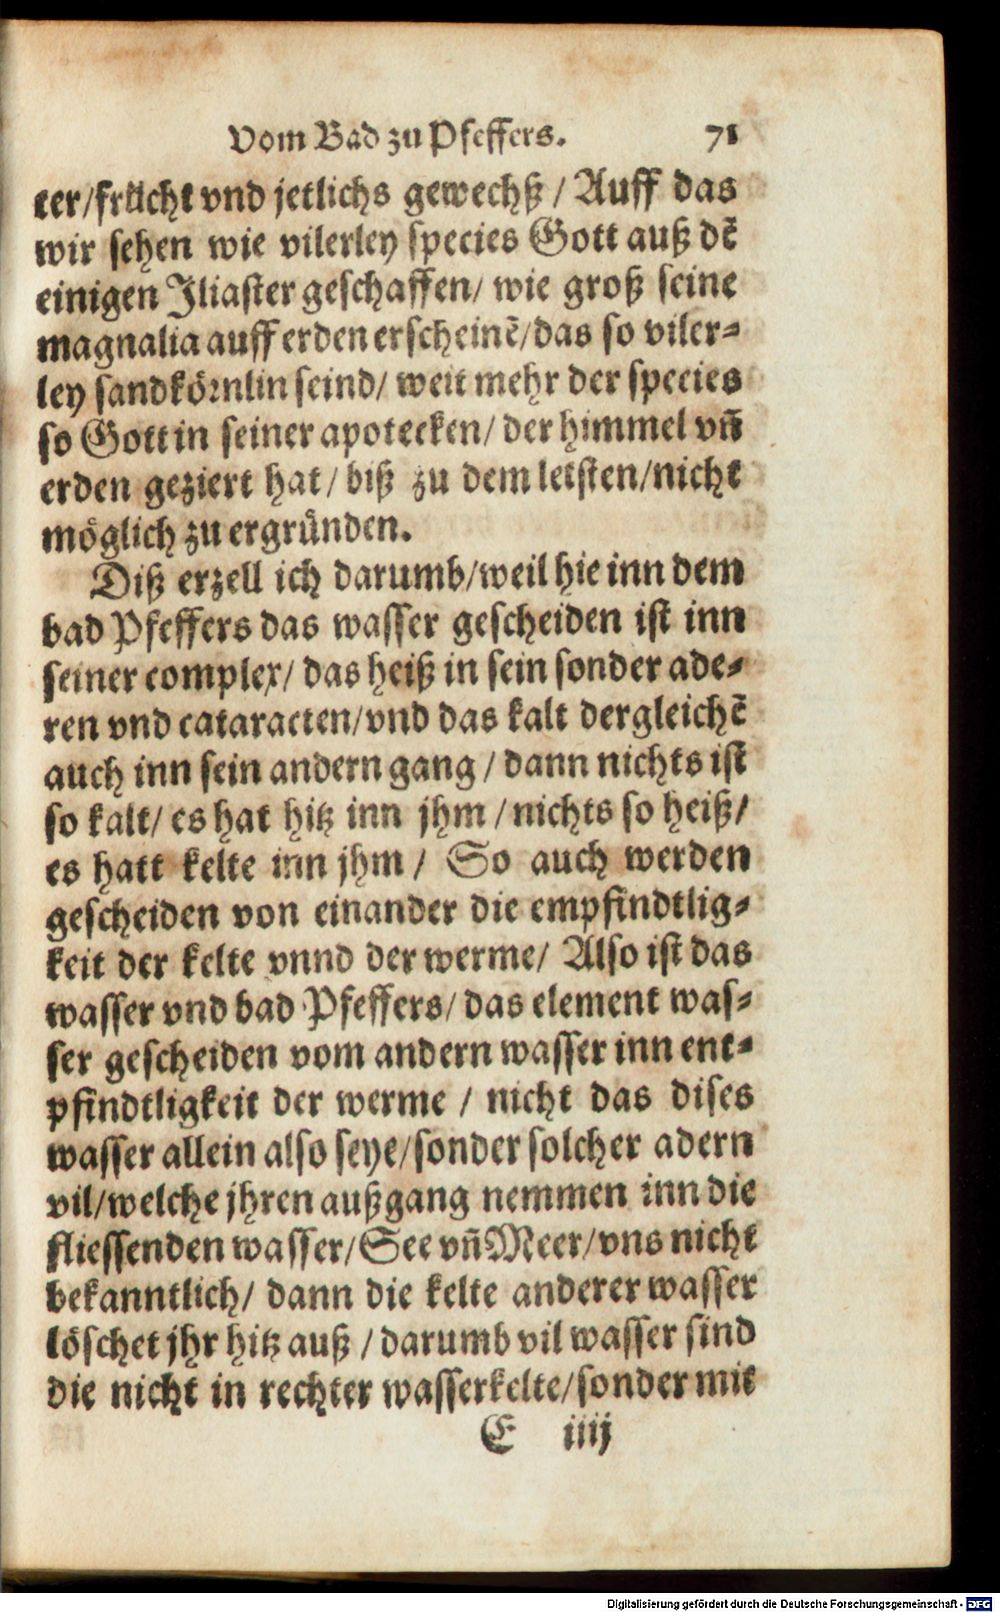 Vom Bad zu Pfeffers. 71
ter/frücht vnd jetlichs gewechß / Auff das
wir sehen wie vilerley species Gott auß dē
einigen Iliaster geschaffen/ wie groß seine
magnalia auff erden erscheinē/das so viler-
ley sandkörnlin seind/ weit mehr der species
so Gott in seiner apotecken/ der himmel vñ
erden geziert hat/ biß zu dem letsten/nicht
möglich zu ergründen.
Diß erzell ich darumb/weil hie inn dem
bad Pfeffers das wasser gescheiden ist inn
seiner complex/ das heiß in sein sonder ade-
ren vnd cataracten/vnd das kalt dergleichē
auch inn sein andern gang / dann nichts ist
so kalt/ es hat hitz inn jhm / nichts so heiß/
es hatt kelte inn jhm / So auch werden
gescheiden von einander die empfindtlig-
keit der kelte vnnd der werme/ Also ist das
wasser vnd bad Pfeffers/ das element was-
ser gescheiden vom andern wasser inn ent-
pfindtligkeit der werme / nicht das dises
wasser allein also seye/sonder solcher adern
vil/welche jhren außgang nemmen inn die
fliessenden wasser/See vñ Meer/vns nicht
bekanntlich/ dann die kelte anderer wasser
löschet jhr hitz auß / darumb vil wasser sind
die nicht in rechter wasserkelte/sonder mit
E iiij
Digitalisierung gefördert durch die Deutsche Forschungsgemeinschaft - DFG